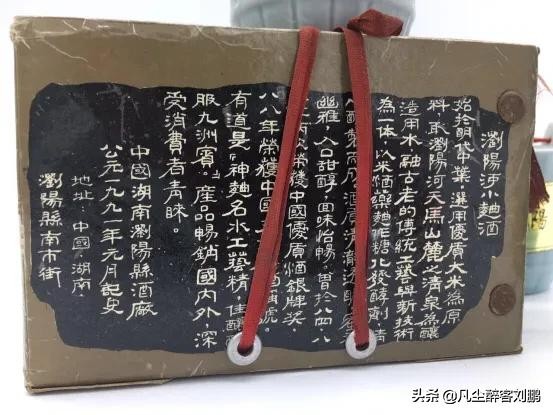 瀏陽河小麯酒
始於明代中葉,選用優質大米為原
料,取瀏陽河天馬山麓之清泉為釀
造用水,融古老的傳統工藝與新技術
為一体,以米酒藥麯作糖化發酵劑,精
釀製而成。酒質清澈透明
幽雅,入口甜醇,回味怡暢。曾於八四、八
次榮獲中國優質酒銀牌奖
八八年榮獲中國 號。
有道是「神麯名水工藝精,佳釀
服九洲賓。」産品暢銷國内外,深
受消費者青睞。
中國湖南瀏陽縣酒廠
公元一九九一年元月起史
地址:中國·湖南·
瀏陽縣南市街
頭条 @凡尘醉客刘鹏